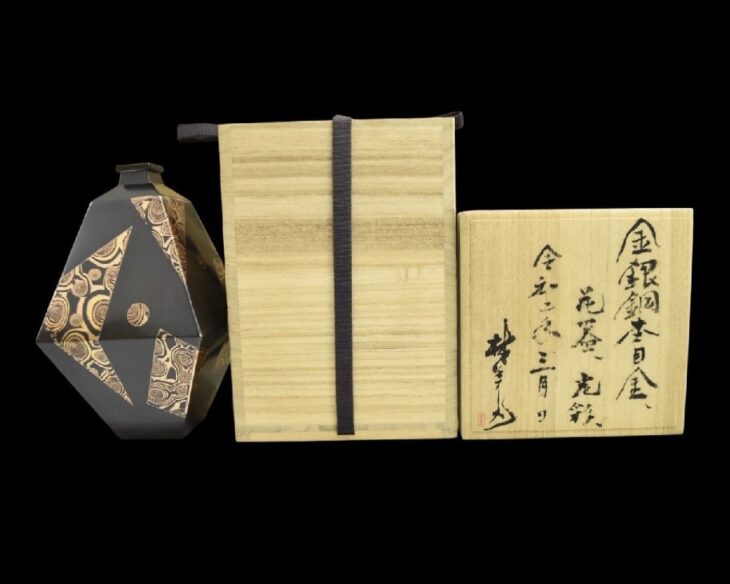 金銀銅杢目金、
花器、虎
令和二年三月 日
林美光